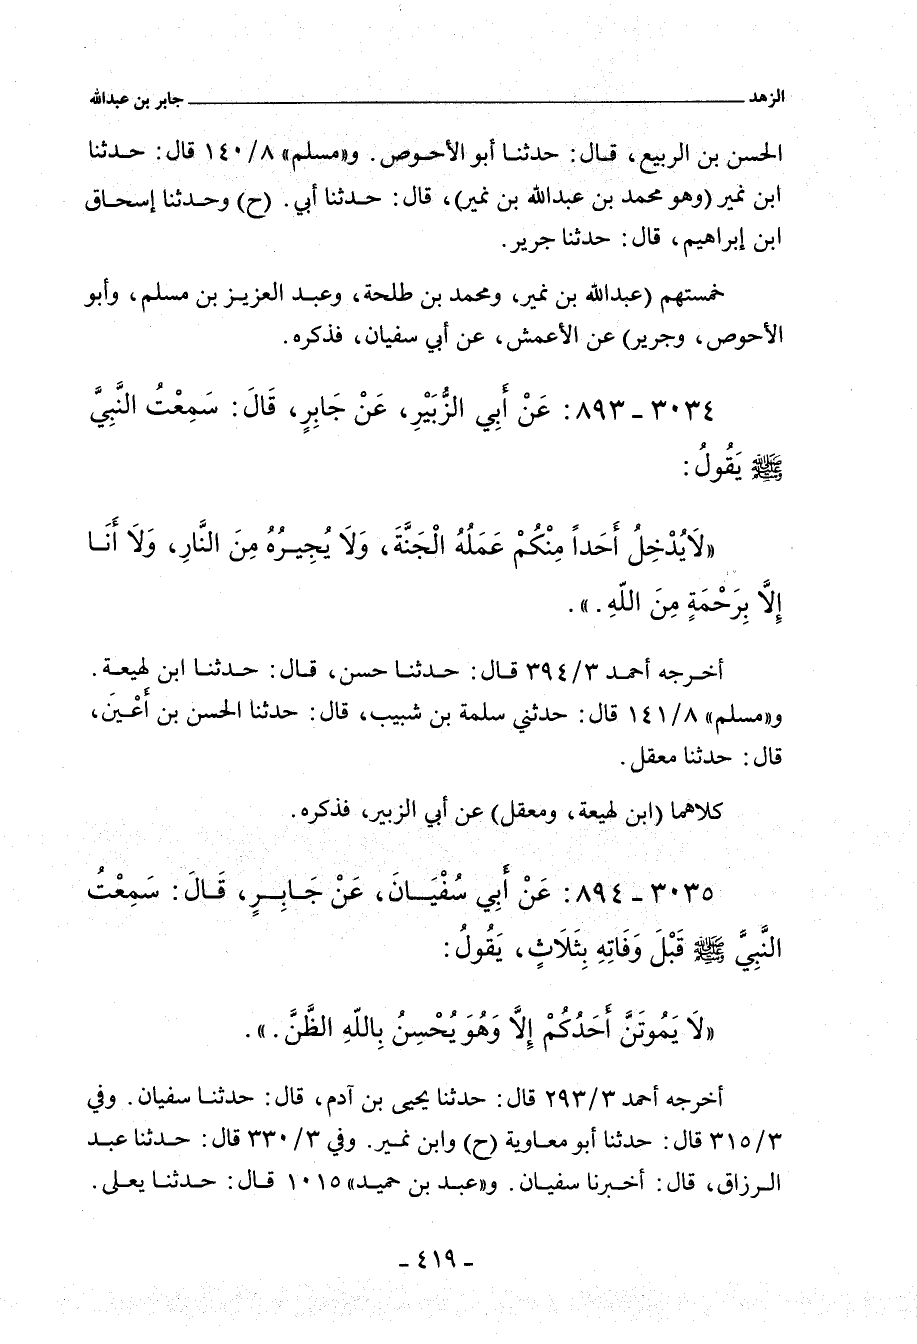 الزهد ــــــــــ جابر بن عبدالله
الحسن بن الربيع، قال: حدثنا أبو الأحوص. و«مسلم» ١٤٠/٨ قال: حدثنا
ابن نمير (وهو محمد بن عبدالله بن نمير)، قال: حدثنا أبي. (ح) وحدثنا إسحاق
ابن إبراهيم، قال: حدثنا جرير.
خمستهم (عبدالله بن نمير، ومحمد بن طلحة، وعبد العزيز بن مسلم، وأبو
الأحوص، وجرير) عن الأعمش، عن أبي سفيان، فذكره.
٣٠٣٤ - ٨٩٣: عَنْ أَبِي الزُّبَيْرِ، عَنْ جَابِرٍ، قَالَ: سَمِعْتُ النَّبِيَّ
ﷺ يَقُولُ:
«لَايُدْخِلُ أَحَداً مِنْكُمْ عَمَلُهُ الْجَنَّةَ، وَلَا يُجِيرُهُ مِنَ النَّارِ، وَلَا أَنَا
إِلَّا بِرَحْمَةٍ مِنَ اللّهِ.».
أخرجه أحمد ٣٩٤/٣ قال: حدثنا حسن، قال: حدثنا ابن لهيعة.
و«مسلم» ١٤١/٨ قال: حدثني سلمة بن شبيب، قال: حدثنا الحسن بن أَعْينَ،
قال: حدثنا معقل.
كلاهما (ابن لهيعة، ومعقل) عن أبي الزبير، فذكره.
٣٠٣٥ - ٨٩٤: عَنْ أَبِي سُفْيَانَ، عَنْ جَابِرٍ، قَالَ: سَمِعْتُ
النَّبِيَّ ﷺ قَبْلَ وَفَاتِهِ بِثَلَاثٍ، يَقُولُ:
«لَا يَمُوتَنَّ أَحَدُكُمْ إِلَّا وَهُوَ يُحْسِنُ بِاللّهِ الظَّنَّ.».
أخرجه أحمد ٢٩٣/٣ قال: حدثنا يحيى بن آدم، قال: حدثنا سفيان. وفي
٣١٥/٣ قال: حدثنا أبو معاوية (ح) وابن نمير. وفي ٣٣٠/٣ قال: حدثنا عبد
الرزاق، قال: أخبرنا سفيان. و«عبد بن حميد» ١٠١٥ قال: حدثنا يعلى.
- ٤١٩ -